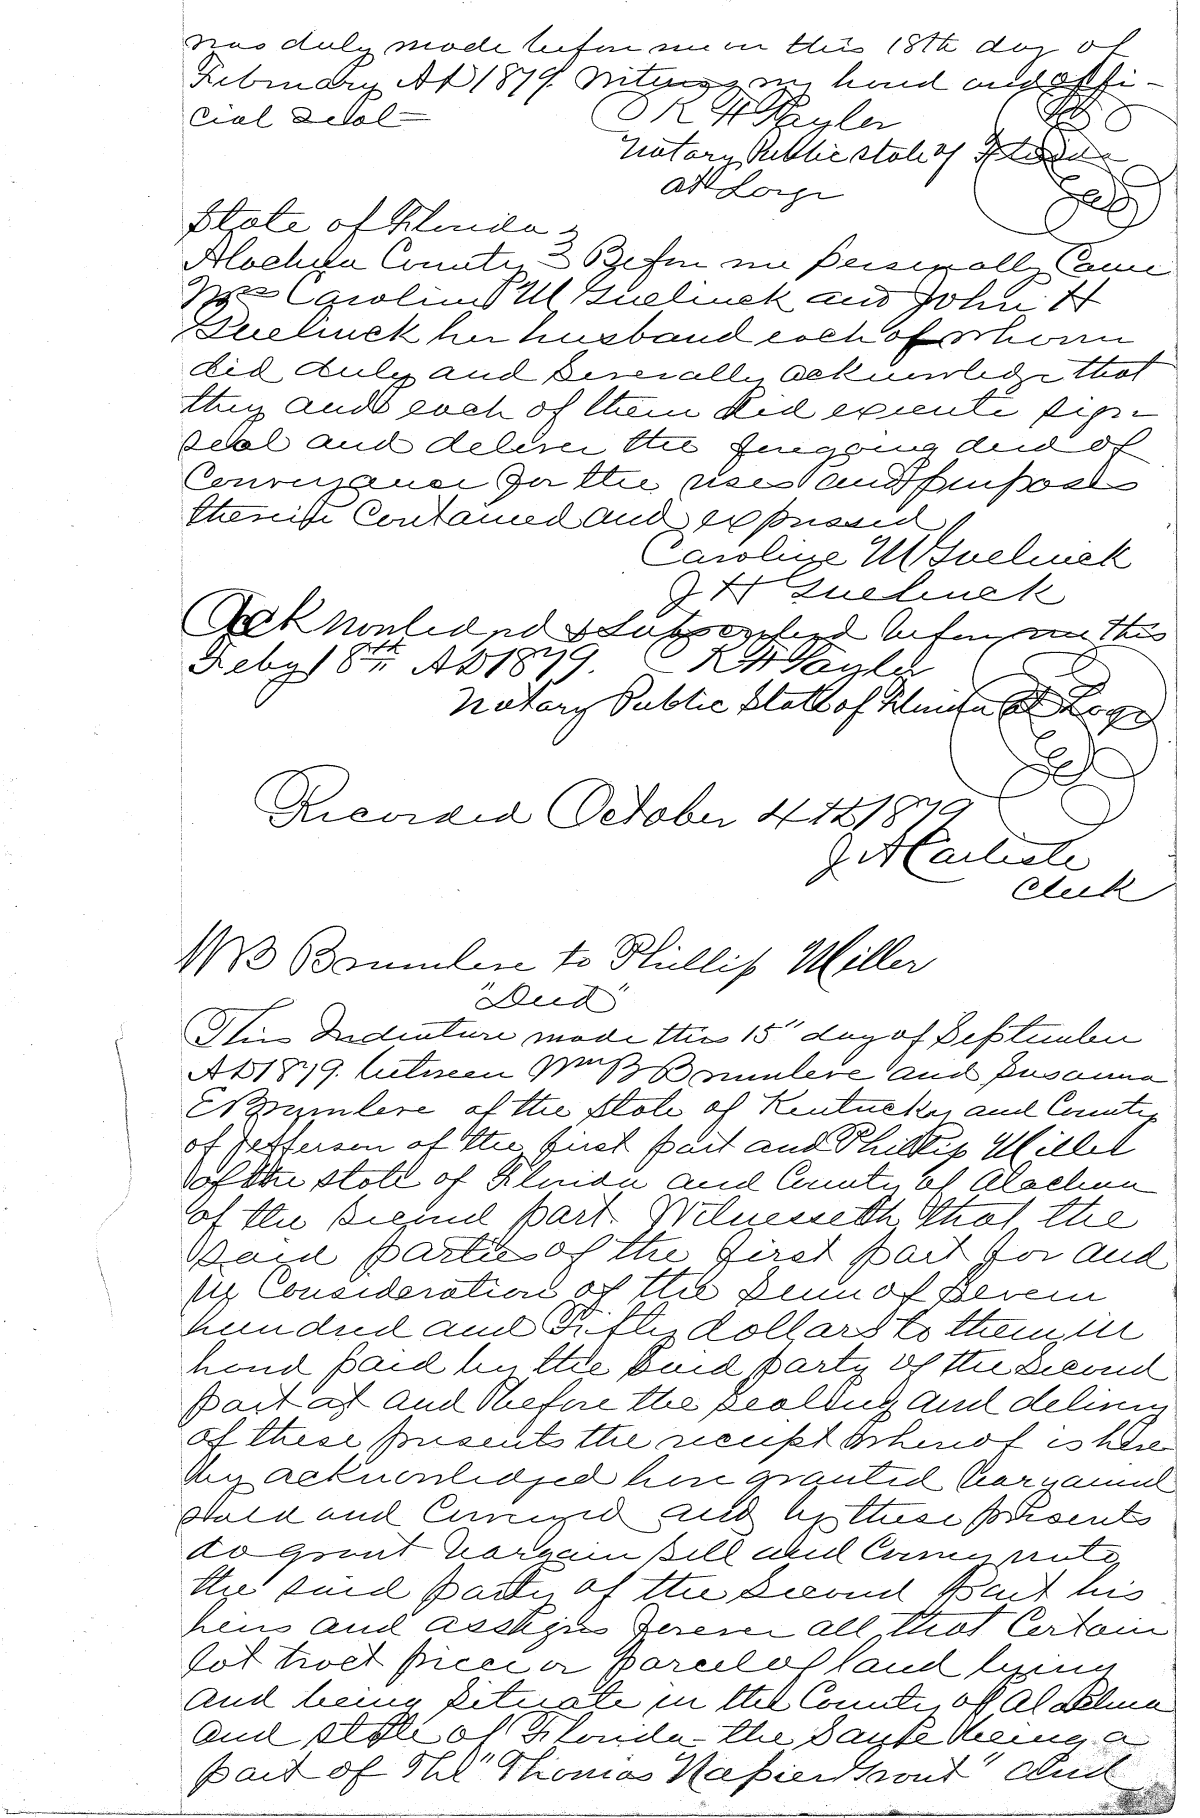 was duly made before me on this 18th day of
February AD 1879. Witness my hand and offi-
cial Seal =
R H Tayler
Notary Public State of Florida
at Large
Seal
State of Florida
Alachua County } Before me personally Came
Mrs Caroline M Guelinck and John H
Guelinck her husband each of whom
did duly and Severally acknowledge that
they and each of them did execute sign
seal and deliver the foregoing deed of
Conveyance for the uses and purposes
therein Contained and expressed
Caroline M Guelinck
J H Guelinck
Acknowledged & Subscribed before me this
Feby 18th AD 1879. R H Tayler
Notary Public State of Florida at Large
Seal
Recorded October 4th 1879
J A Carlisle
Clerk
W B Brumlere to Phillip Miller
"Deed"
This Indenture made this 15" day of September
AD 1879. between Wm B Brumlere and Susanna
E Brumlere of the State of Kentucky and County
of Jefferson of the first part and Phillip Miller
of the State of Florida and County of Alachua
of the Second part. Witnesseth that the
said parties of the first part for and
in Consideration of the Sum of Seven
hundred and Fifty dollars to them in
hand paid by the said party of the Second
part at and before the sealing and delivery
of these presents the receipt whereof is here
by acknowledged have granted bargained
sold and Conveyed and by these presents
do grant bargain Sell and Convey unto
the said party of the Second part his
heirs and assigns forever all that Certain
lot tract piece or parcel of land lying
and being Situate in the County of Alachua
and State of Florida the Same being a
part of The "Thomas Napier Grant" and